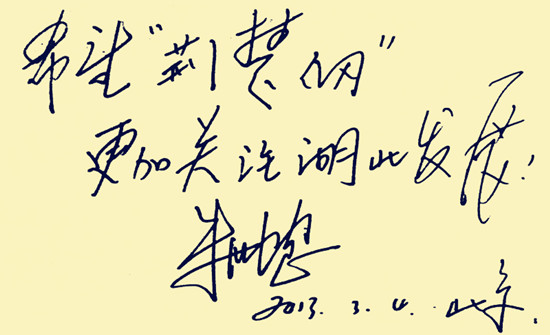 希望"荆楚网"
更加关注湖北发展!
朱世慧
2013.3.4.北京.